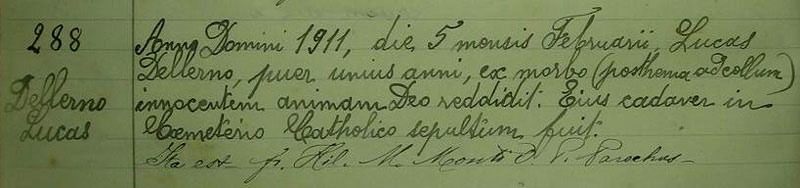 288
Dellerno
Lucas
Anno Domini 1911, die 5 mensis Februarii, Lucas
Dellerno, puer unius anni, ex morbo (posthema ad collum)
innocentem animam Deo reddidit. Eius cadaver in
Cœmeterio Catholico sepultum fuit.
Ita est fr. Hil. M. Monti O. P. Parochus